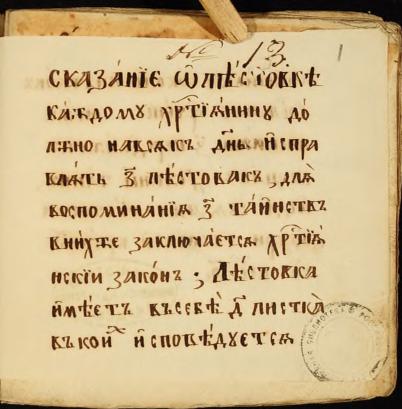 № 13.
1
СКАЗА́НЇЕ Ѡ ЛѢ́СТОВКѢ
ка́ждому хр҃тїѧ́нину до́
лжно навсѧкъ дн҃ь и҆спра
влѧ́ть з҃ лѣ́стовакъ, длѧ̀
воспомина́нїѧ з҃ та́инствъ
вни́хже заключа́етсѧ хр҃тїѧ́
нскїи зако́нъ ; Лѣ́стовка
и҆мѣ́етъ въсебѣ̀ д҃ листка̀
въкои̑х и҆сповѣ́дуетсѧ